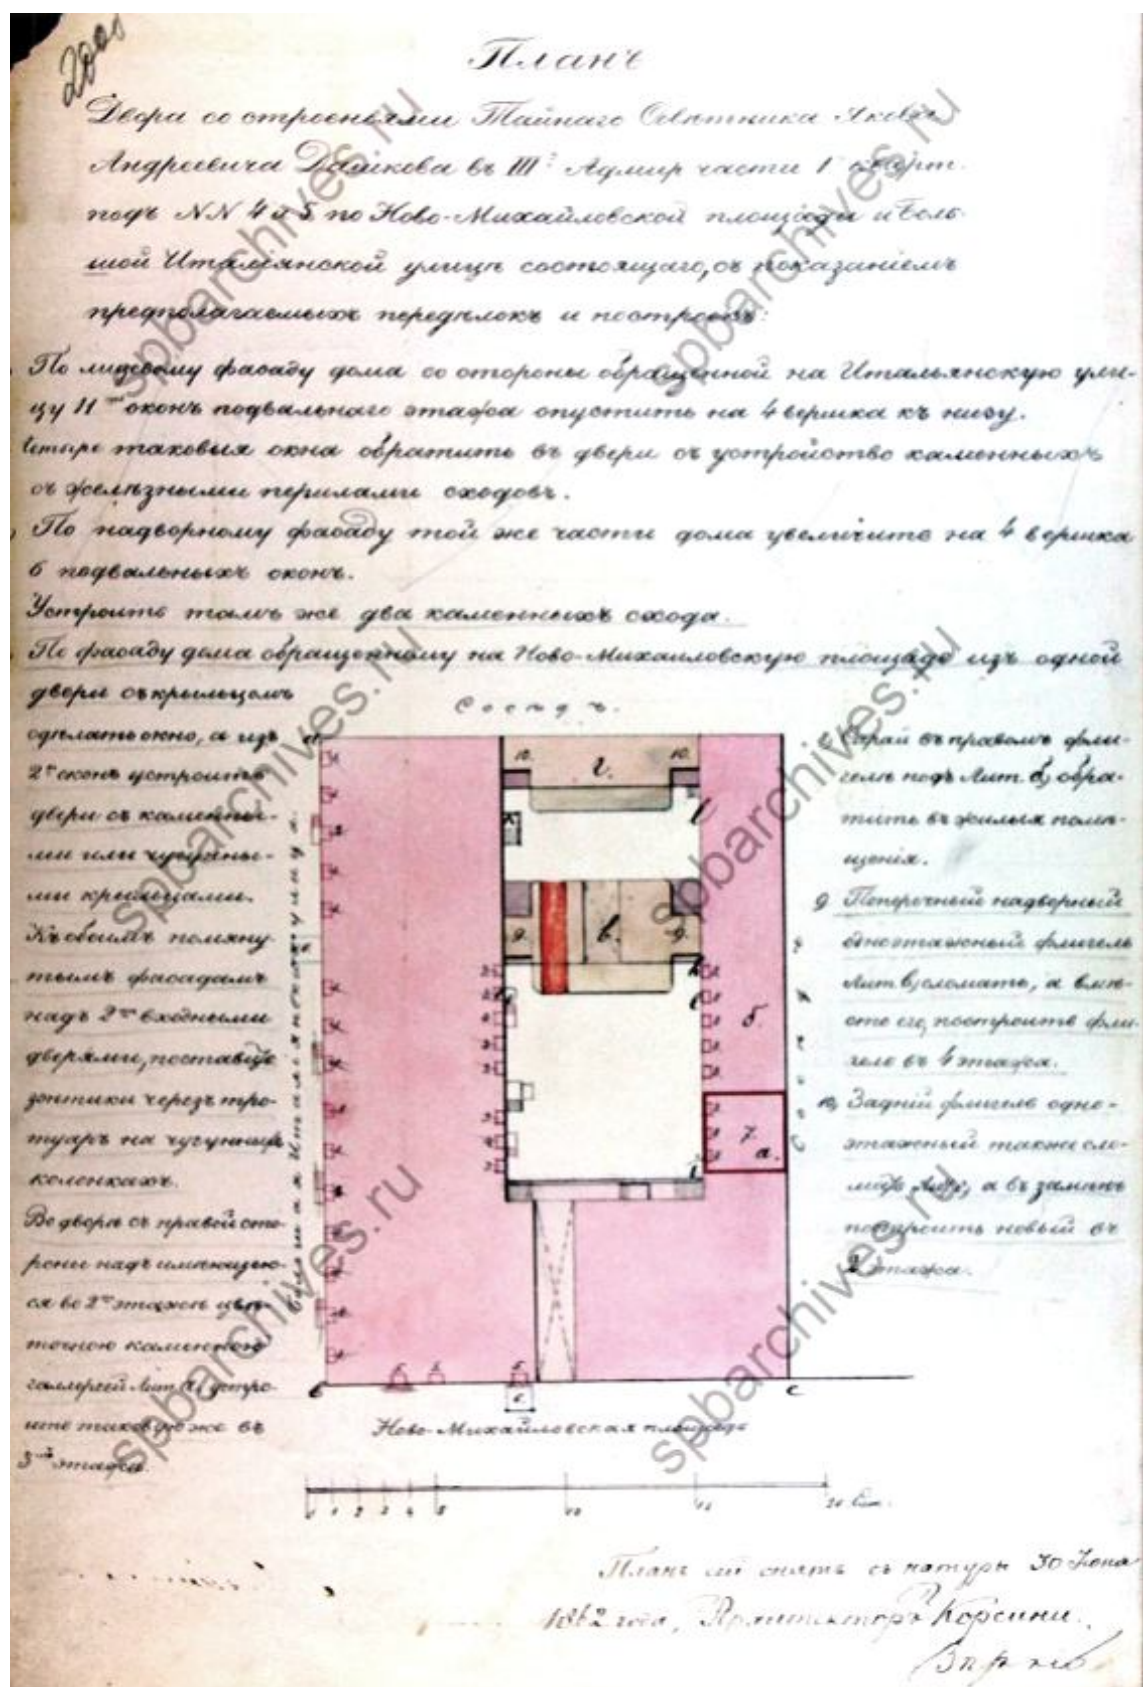 2000
Планъ
Двора со строеньями Тайнаго Совѣтника Якова
Андреевича Дашкова въ III й Адмир части 1 кварт.
подъ NN 4 и 5 по Ново-Михайловской площади и Боль-
шой Итальянской улицѣ состоящаго, съ показаніемъ
предполагаемыхъ передѣлокъ и построекъ:
По лицевому фасаду дома со стороны обращенной на Итальянскую ули-
цу 11 ть оконъ подвальнаго этажа опустить на 4 вершка къ низу.
Четыре таковыя окна обратить въ двери съ устройство каменныхъ
съ желѣзными перилами сходовъ.
По надворному фасаду той же части дома увеличить на 4 вершка
6 подвальныхъ оконъ.
Устроить тамъ же два каменныхъ схода.
По фасаду дома обращенному на Ново-Михайловскую площадь изъ одной
двери съ крыльцомъ
сдѣлать окно, а изъ
2хъ оконъ устроить
двери съ каменны-
ми или чугунны-
ми крыльцами.
Къ обоимъ помяну-
тымъ фасадамъ
надъ 2мя входными
дверями, поставить
зонтики черезъ тро-
туаръ на чугунныхъ
колонкахъ.
Во дворѣ съ правой сто-
роны надъ имѣющею-
ся во 2мъ этажѣ цвѣ-
точною каменною
галлереей Лит. а, устро-
ить таковую же въ
3мъ этажѣ.
Сосѣдъ.
10.
г.
10.
9.
в.
9.
б.
7.
а.
Большая Итальянская улица.
с
Ново-Михайловская площадь
0 1 2 3 4 5 10 15 20 Саж.
Сарай въ правомъ фли-
гелѣ подъ Лит. б, обра-
тить въ жилыя помѣ-
щенія.
9 Поперечный надворный
одноэтажный флигель
Лит в, сломать, а вмѣ-
сто его, построить фли-
гель въ 4 этажа.
10, Задній флигель одно-
этажный также сло-
мать Лит г, а въ замѣнъ
построить новый въ
2 этажа.
Планъ сей снятъ съ натуры 30 Іюня
1862 года, Архитекторъ Корсини.
spbarchives.ru
spbarchives.ru
spbarchives.ru
spbarchives.ru
spbarchives.ru
spbarchives.ru